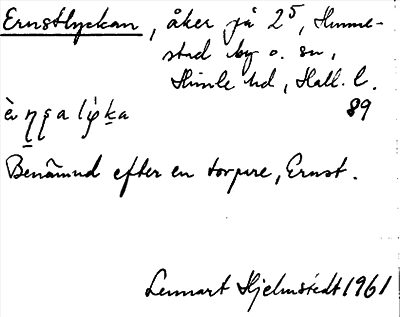 Ernstlyckan, åker på 2⁵, Humme-
stad by o. sn,
Himle hd, Hall. l.
89
Benämnd efter en torpare, Ernst.
Lennart Hjelmstedt 1961